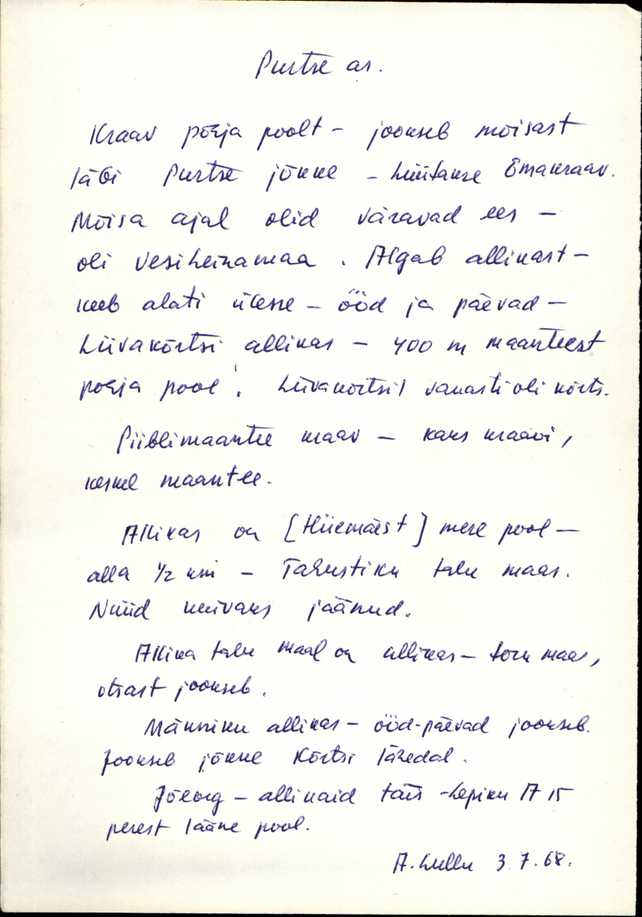 Purtse as.
Kraav põhja poolt – jookseb mõisast
läbi Purtse jõkke – hüütakse Emakraav.
Mõisa ajal olid väravad ees –
oli vesiheinamaa. Algab allikast –
keeb alati ülesse – ööd ja päevad –
Liivakõrtsi allikas – 400 m maanteest
põhja pool. Liivakõrtsil vanasti oli kõrts.
Piiblimaantee kraav – kaks kraavi,
keskel maantee.
Allikas on [Hiiemäest] mere pool –
alla 1/2 km – Tahustiku talu maas.
Nüüd kuivaks jäänud.
Allika talu maal on allikas – toru maas,
otsast jookseb.
Männiku allikas – ööd-päevad jookseb.
Jookseb jõkke Kõrtsi lähedal.
Jõeorg – allikaid täis – Lepiku A 15
perest lääne pool.
A. 3.7.68.